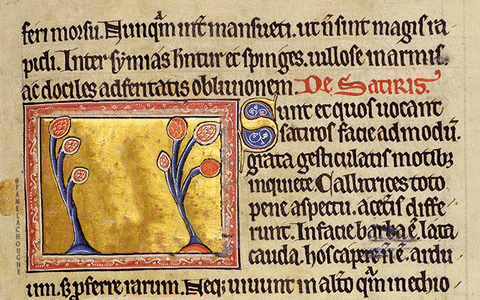 feri morsu. Nunqm̄ uᷓt mansueti. ut n̄ sint magis ra
pidi. Inter symias hn̄tur et spinges. uillose in armis
ac dociles ad feritatis obliuionem. De Satiris.
Sunt et quos uocant
satiros facie admodū
grata gesticulatis motibꝫ
inquiete. Callitrices toto
pene aspectu. a cet̄is diffe
runt. In facie barba ē. lata
cauda. hos capere n̄ ē. ardu
um. sꝫ p̱ferre rarum. Neqꝫ uiuunt in alio qm̄ in ethio
©PAMELACHOUGNE